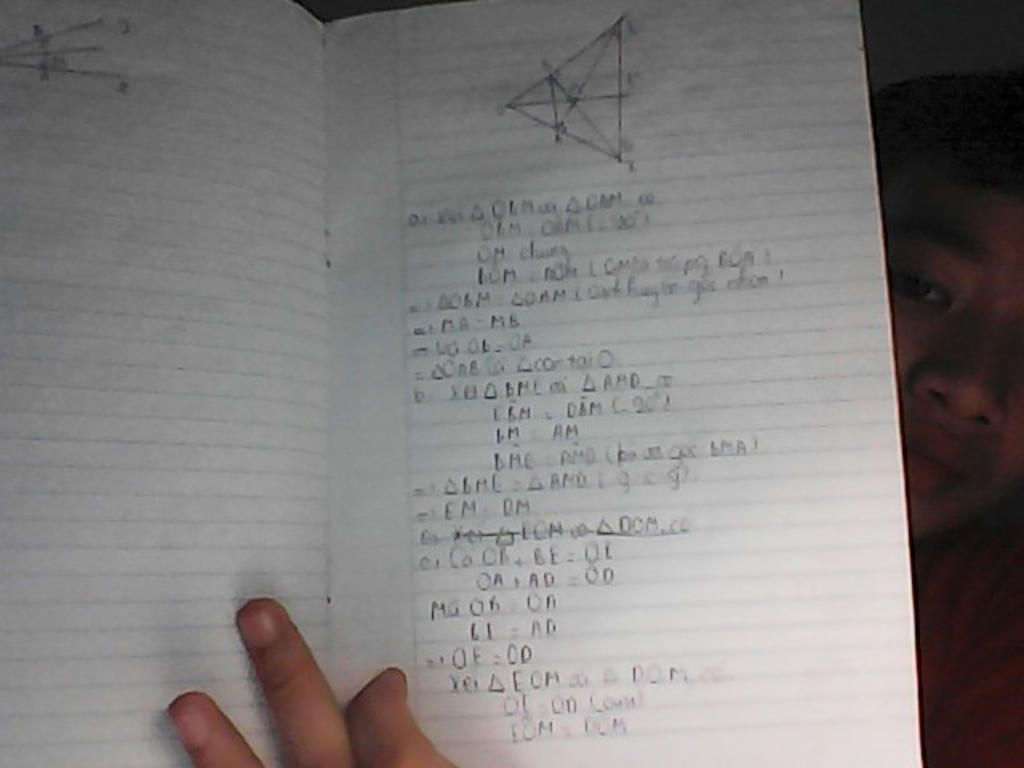 a, Xét △ OBM và △ OAM có
OBM = OAM (= 90°)
OM chung
BOM = AOM (OM là
=> △OBM = △OAM (cạnh huyền góc nhọn)
=> MA = MB
=> và OB = OA
= △OAB là △ cân tại O
b, Xét △ BME và △ AMD có
EBM = DAM (= 90°)
BM = AM
BME = AMD ( góc BMA)
=> △BME = △AMD (g c g)
=> EM = DM
c, Xét △ ECM và △ DCM có
c, Có OB + BE = OE
OA + AD = OD
Mà OB = OA
BE = AD
=> OE = OD
Xét △ EOM và △ DOM có
OE = OD (cmt)
EOM = DOM